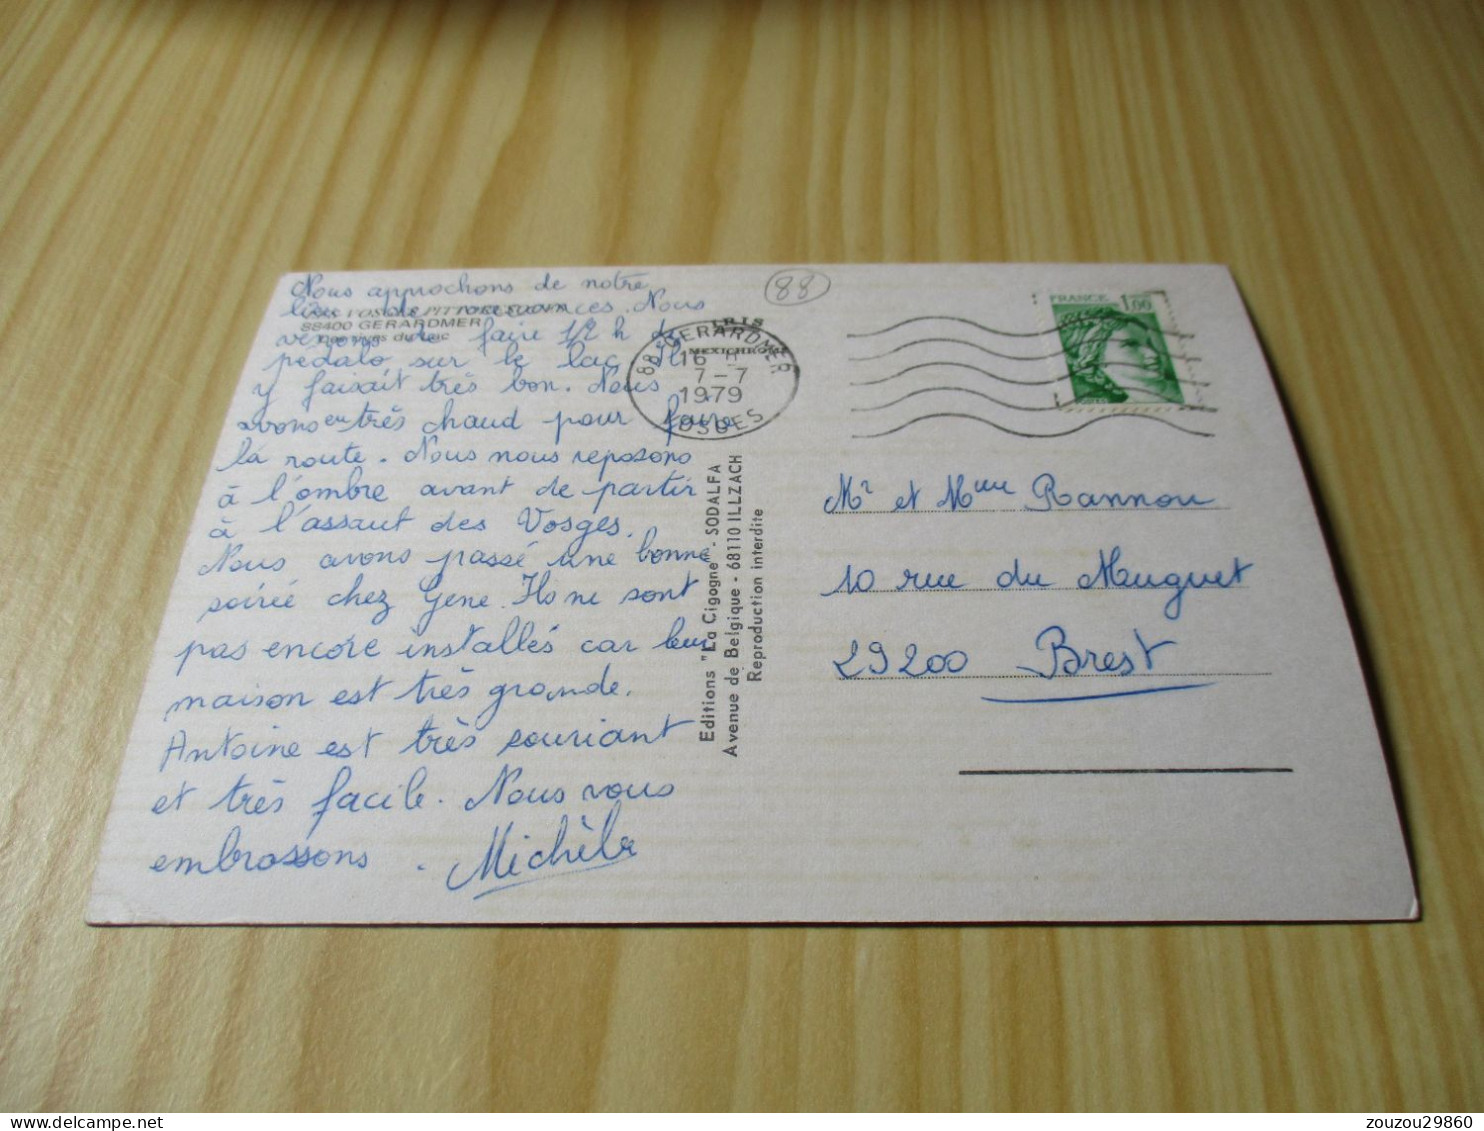 Nous approchons de notre
lieu de vacances. Nous
venons de faire 1/2 h de
pedalo sur le lac. Il
y faisait très bon. Nous
avons eu très chaud pour faire
la route. Nous nous reposons
à l'ombre avant de partir
à l'assaut des Vosges.
Nous avons passé une bonne
soirée chez Gene. Ils ne sont
pas encore installés car leur
maison est très grande.
Antoine est très souriant
et très facile. Nous vous
embrassons. Michèle
LES VOSGES PITTORESQUES
88400 GERARDMER
du lac
88
IRIS
MEXICHROME
88 GERARDMER
16 H
7-7
1979
VOSGES
Editions "La Cigogne" - SODALFA
Avenue de Belgique - 68110 ILLZACH
Reproduction interdite
FRANCE 1,00
Mr et Mme Rannou
10 rue du Muguet
29200 Brest
zouzou29860